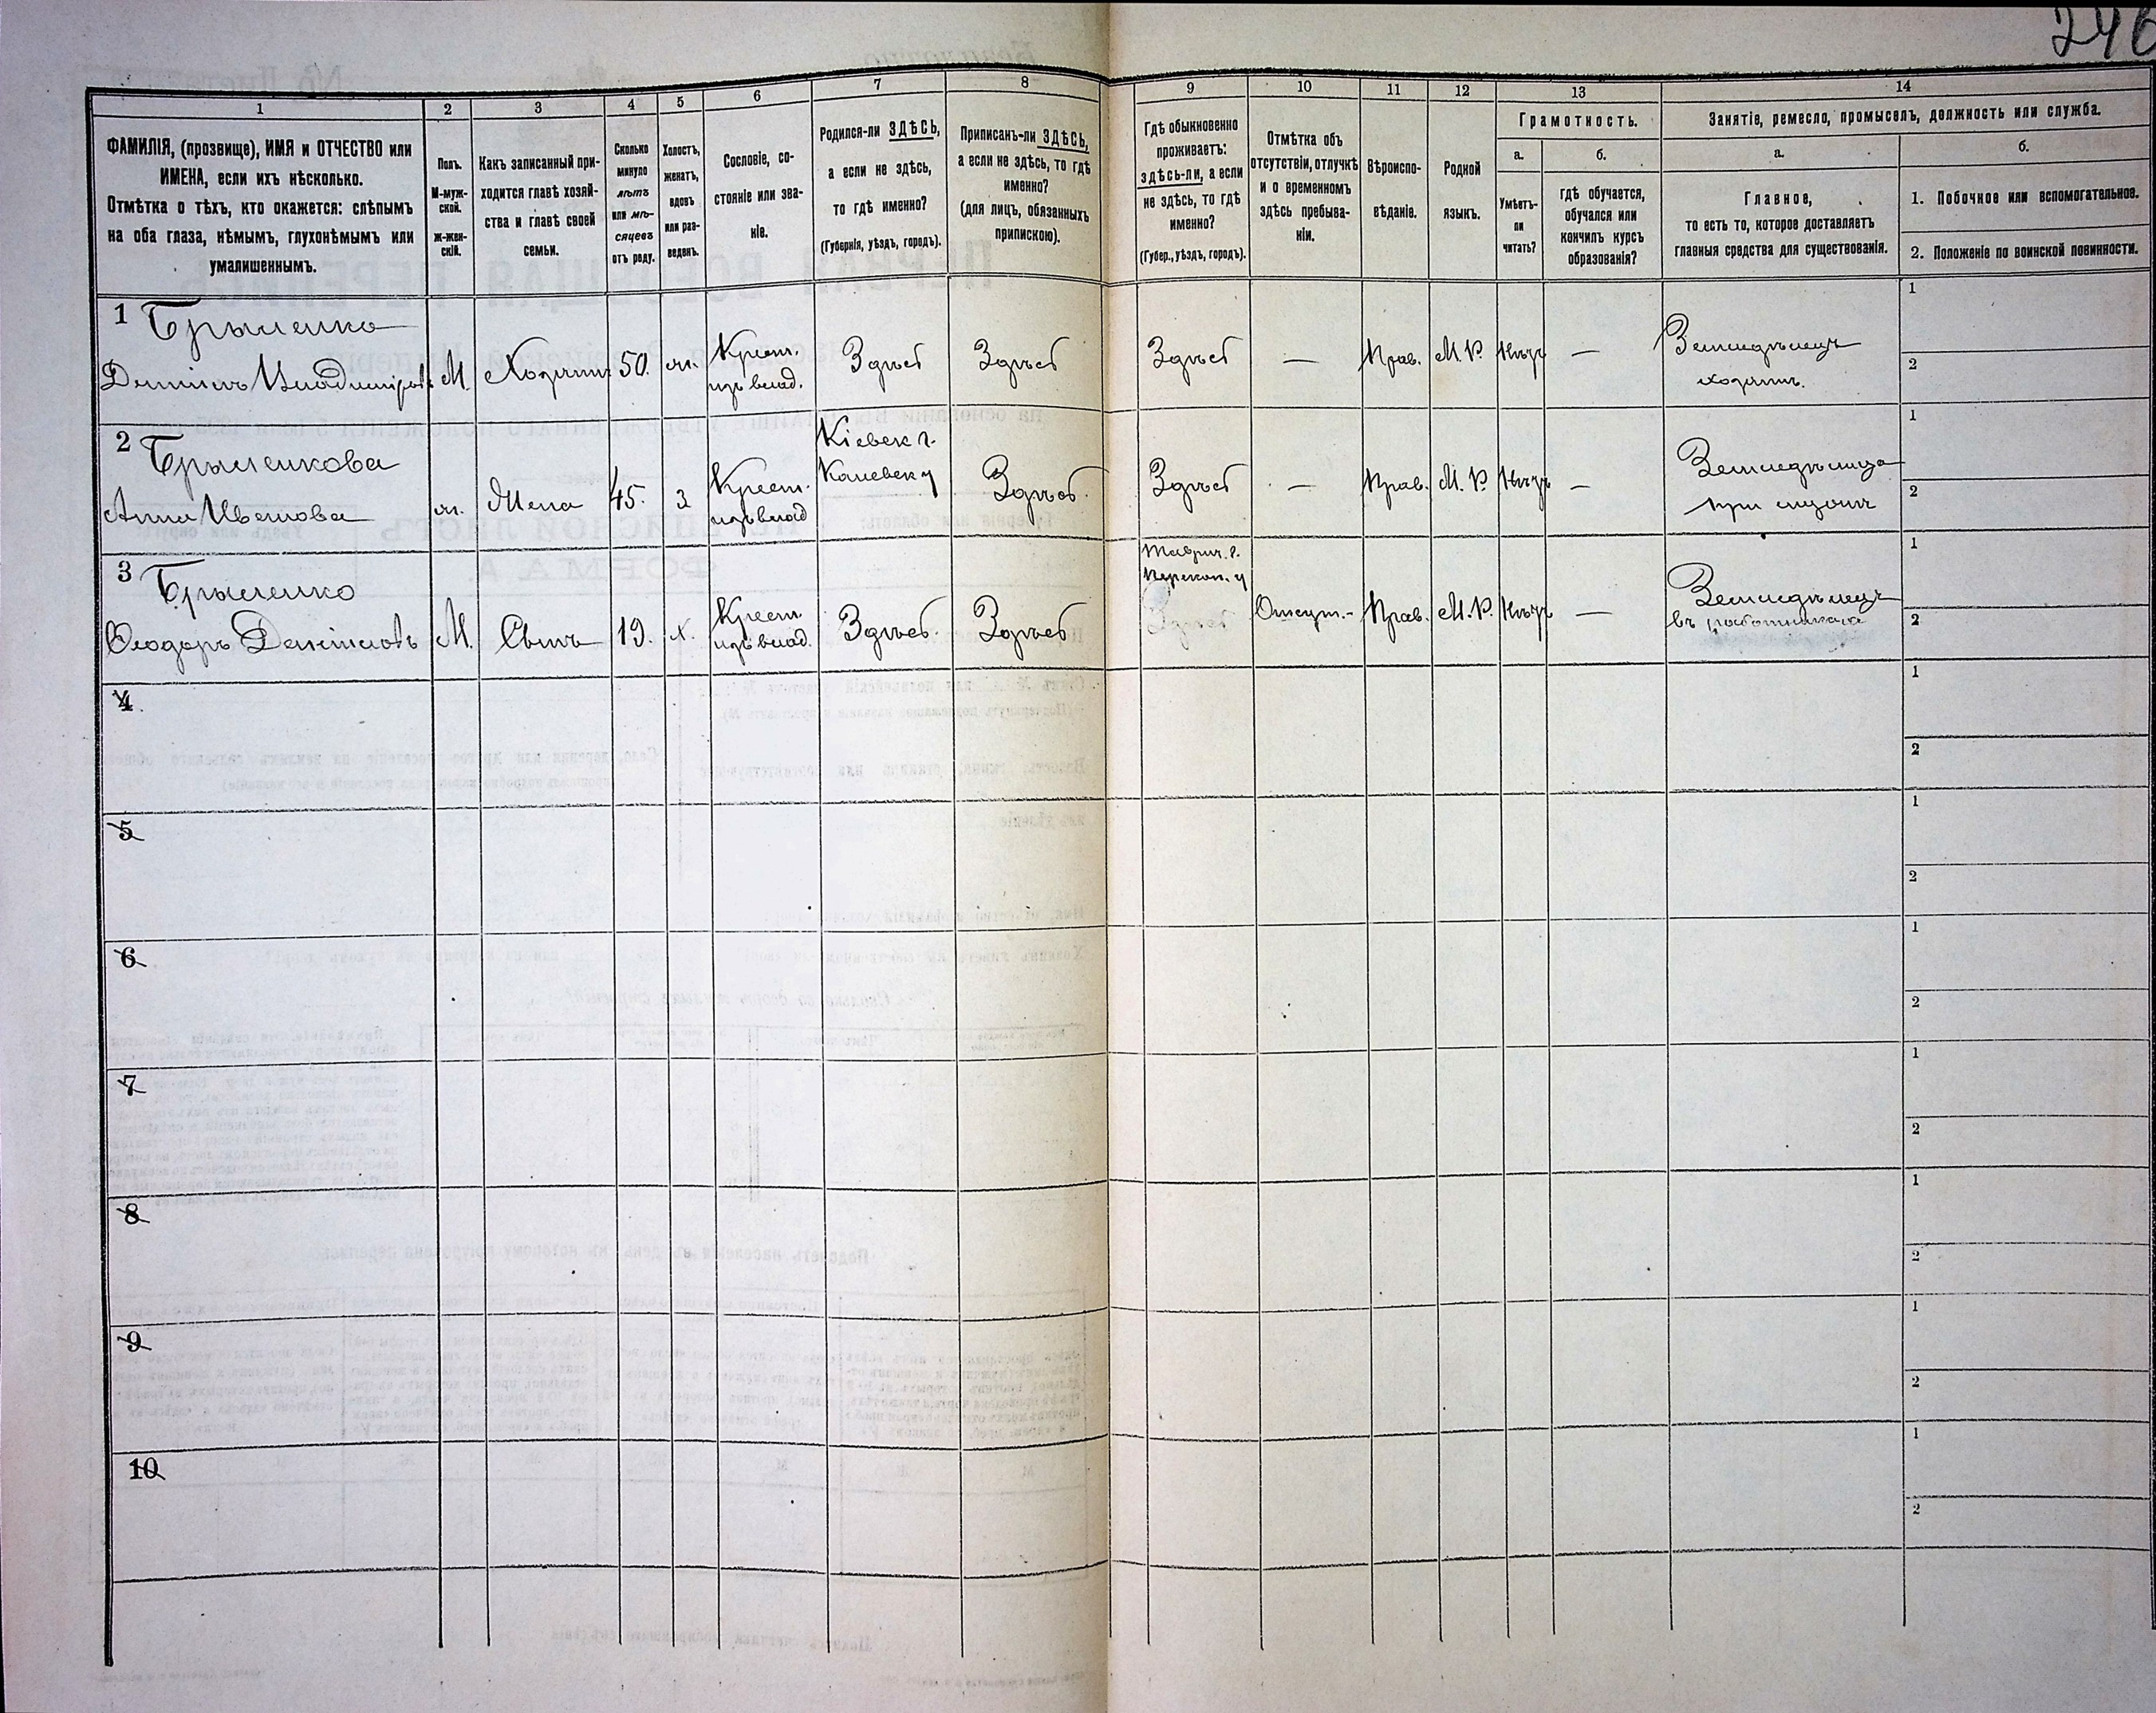 246
1 2 3 4 5 6 7 8 9 10 11 12 13 14
ФАМИЛІЯ, (прозвище), ИМЯ и ОТЧЕСТВО или
ИМЕНА, если ихъ нѣсколько.
Отмѣтка о тѣхъ, кто окажется: слѣпымъ
на оба глаза, нѣмымъ, глухонѣмымъ или
умалишеннымъ.
Полъ.
М-муж-
ской.
Ж-жен-
скій.
Какъ записанный при-
ходится главѣ хозяй-
ства и главѣ своей
семьи.
Сколько
минуло
лѣтъ
или мѣ-
сяцевъ
отъ роду.
Холостъ,
женатъ,
вдовъ
или раз-
веденъ.
Сословіе, со-
стояніе или зва-
ніе.
Родился-ли ЗДѢСЬ,
а если не здѣсь,
то гдѣ именно?
(Губернія, уѣздъ, городъ).
Приписанъ-ли ЗДѢСЬ,
а если не здѣсь, то гдѣ
именно?
(для лицъ, обязанныхъ
припискою).
Гдѣ обыкновенно
проживаетъ:
здѣсь-ли, а если
не здѣсь, то гдѣ
именно?
(Губер., уѣздъ, городъ).
Отмѣтка объ
отсутствіи, отлучкѣ
и о временномъ
здѣсь пребыва-
ніи.
Вѣроиспо-
вѣданіе.
Родной
языкъ.
Грамотность.
а.
Умѣетъ-
ли
читать?
б.
гдѣ обучается,
обучался или
кончилъ курсъ
образованія?
Занятіе, ремесло, промыселъ, должность или служба.
а.
Главное,
то есть то, которое доставляетъ
главныя средства для существованія.
б.
1. Побочное или вспомогательное.
2. Положеніе по воинской повинности.
1
М. Хозяинъ 50. ж. Крест. изъ влад. Здѣсь Здѣсь Здѣсь — Прав. М. Р. Нѣтъ —
Земледѣлецъ
хозяинъ.
1
2
2
Анна Иванова
ж. Жена 45. з Крест. изъ влад
Кіевск г.
Каневск у
Здѣсь Здѣсь — Прав. М. Р. Нѣтъ —
Земледѣлица
при мужѣ
1
2
3
Ѳеодоръ
М. Сынъ 19. х. Крест изъ влад. Здѣсь. Здѣсь
Таврич. г.
Перекоп. у
Отсут. Прав. М. Р. Нѣтъ —
Земледѣлецъ
въ работникахъ
1
2
4
1
2
5
1
2
6
1
2
7
1
2
8
1
2
9
1
2
10
1
2